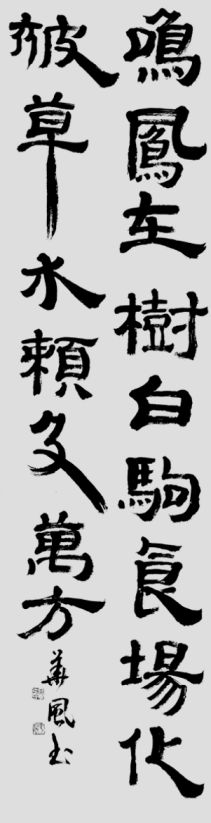 鳴鳳在樹白駒食場化
被草木賴及萬方
華風书